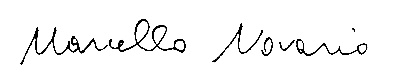 Marcello Novario